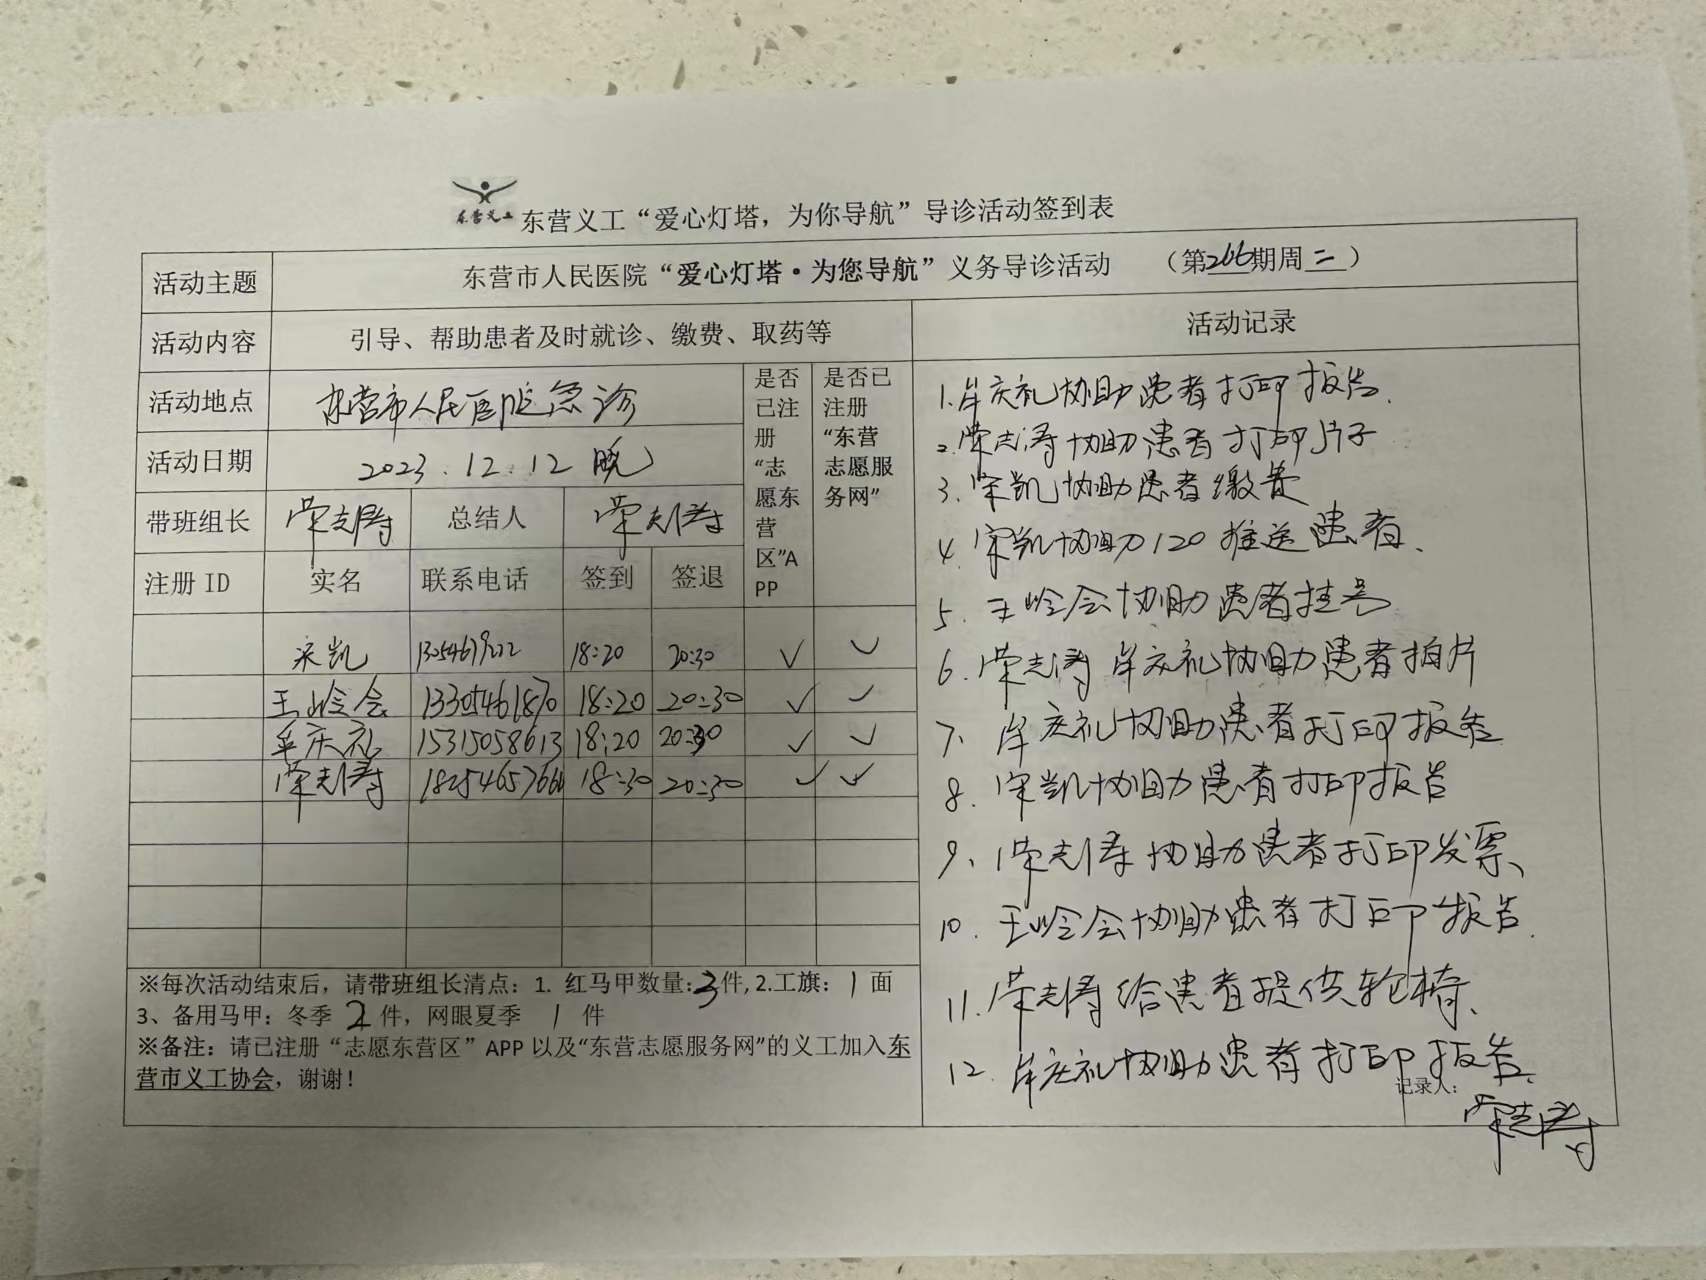 东营义工
东营义工“爱心灯塔，为你导航”导诊活动签到表
活动主题
东营市人民医院“爱心灯塔·为您导航”义务导诊活动 （第266期周二）
活动内容
引导、帮助患者及时就诊、缴费、取药等
活动记录
活动地点
东营市人民医院急诊
活动日期
2023.12.12 晚
带班组长
荣志涛
总结人
荣志涛
是否
已注
册
“志
愿东
营
区”A
PP
是否已
注册
“东营
志愿服
务网”
注册 ID 实名 联系电话 签到 签退
宋凯 18:20 20:30 ✓ ✓
王岭会 13305461870 18:20 20:30 ✓ ✓
庆礼 15315058613 18:20 20:30 ✓ ✓
荣志涛 18254657666 18:30 20:30 ✓ ✓
1. 庆礼协助患者打印报告.
2. 荣志涛协助患者打印片子
3. 宋凯协助患者缴费
4. 宋凯协助120推送患者.
5. 王岭会协助患者挂号
6. 荣志涛 庆礼协助患者拍片
7、 庆礼协助患者打印报告
8. 宋凯协助患者打印报告
9、荣志涛协助患者打印发票、
10. 王岭会协助患者打印报告.
11. 荣志涛给患者提供轮椅、
12. 庆礼协助患者打印报告.
记录人：
荣志涛
※每次活动结束后，请带班组长清点：1. 红马甲数量:3件, 2.工旗：1面
3、备用马甲：冬季 2 件，网眼夏季 1 件
※备注：请已注册“志愿东营区”APP 以及“东营志愿服务网”的义工加入东
营市义工协会，谢谢！